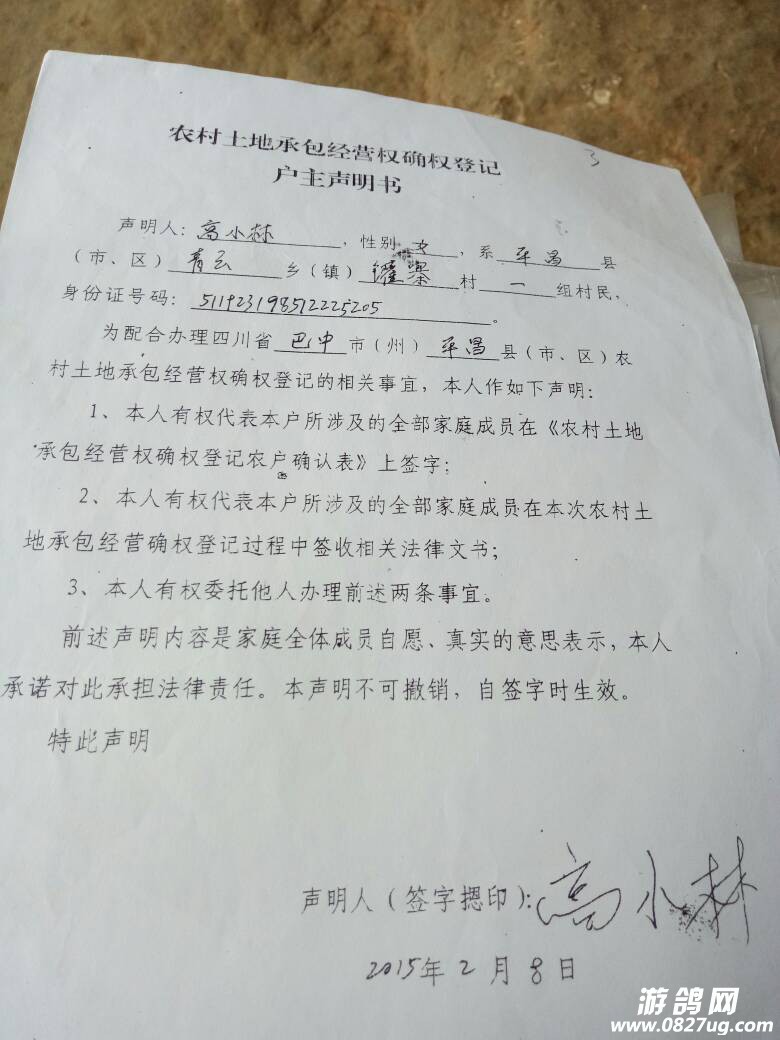 农村土地承包经营权确权登记
3
户主声明书
声明人：高小林，性别女，系平昌县
（市、区）青云乡（镇）寨村一组村民，
身份证号码：511923198512225205。
为配合办理四川省巴中市（州）平昌县（市、区）农
村土地承包经营权确权登记的相关事宜，本人作如下声明：
1、本人有权代表本户所涉及的全部家庭成员在《农村土地
承包经营权确权登记农户确认表》上签字；
2、本人有权代表本户所涉及的全部家庭成员在本次农村土
地承包经营确权登记过程中签收相关法律文书；
3、本人有权委托他人办理前述两条事宜。
前述声明内容是家庭全体成员自愿、真实的意思表示，本人
承诺对此承担法律责任。本声明不可撤销，自签字时生效。
特此声明
声明人（签字摁印）：高小林
2015年2月8日
游鸽网
www.0827ug.com